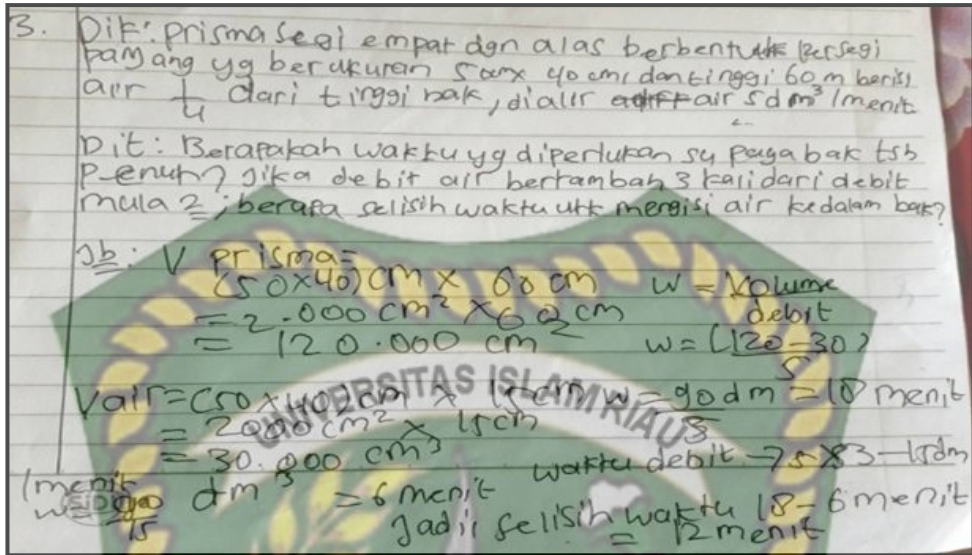 3. Dik: prisma segi empat dgn alas berbentuk persegi
panjang yg berukuran 50cm x 40 cm, dan tinggi 60 m berisi
air 1/4 dari tinggi bak, dialir air 5 dm³/menit
Dit: Berapakah waktu yg diperlukan supaya bak tsb
Penuh? Jika debit air bertambah 3 kali dari debit
mula 2, berapa selisih waktu utk mengisi air kedalam bak?
Jb: V prisma=
(50x40)cm x 60 cm
= 2.000 cm² x 60 cm
= 120.000 cm
w = Volume
debit
w = (120-30)
5
w = 90 dm = 18 menit
5
Vair = (50 x 40) cm x 15cm
= 2000 cm² x 15cm
= 30.000 cm³
UNIVERSITAS ISLAM RIAU
waktu debit → 5 x 3 = 15dm
/menit
w = 90 dm³ = 6 menit
15
Jadi, selisih waktu 18 - 6 menit
= 12 menit